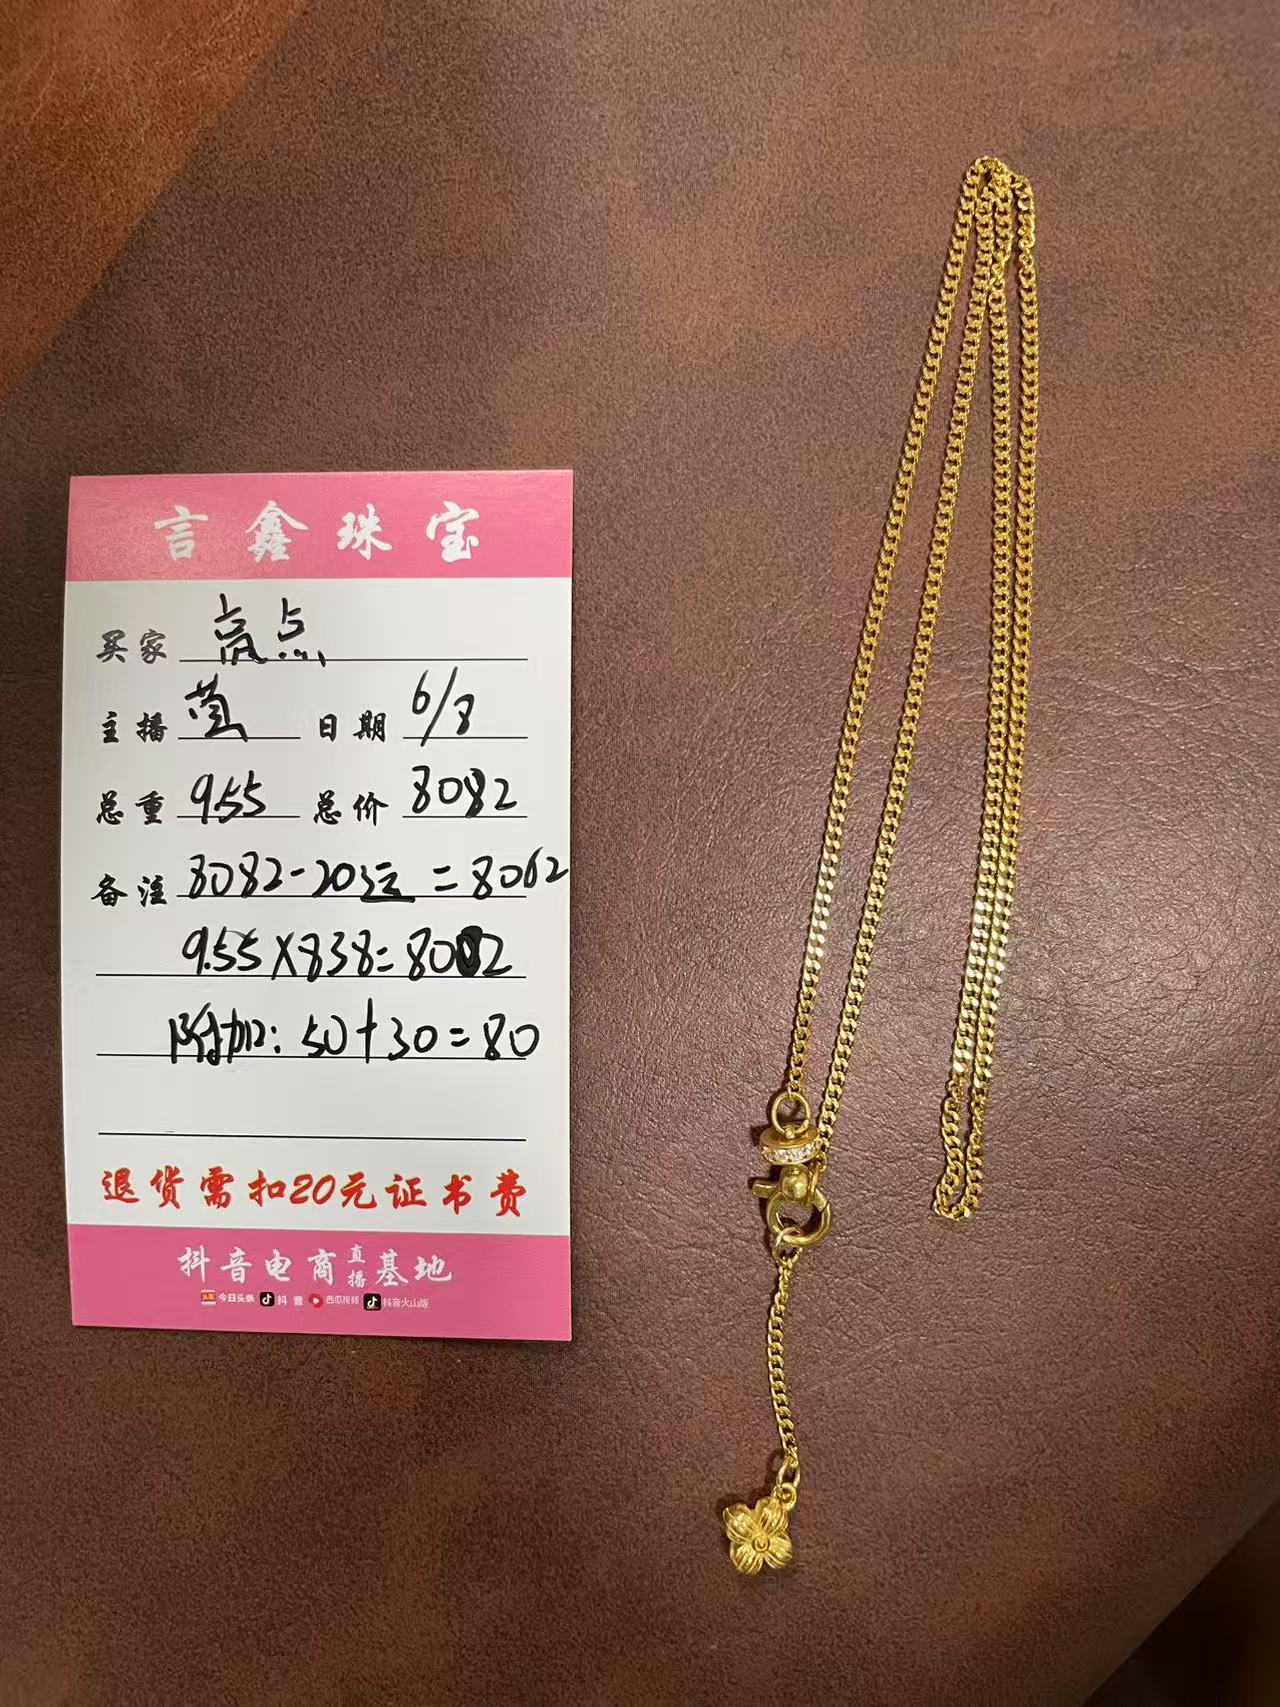 言鑫珠宝
买家 高点
主播 萱 日期 6/8
总重 9.55 总价 8082
备注 8082-20运=8062
9.55×838=8002
附加:50+30=80
退货需扣20元证书费
抖音电商直播基地
头条 今日头条 抖音 西瓜视频 抖音火山版